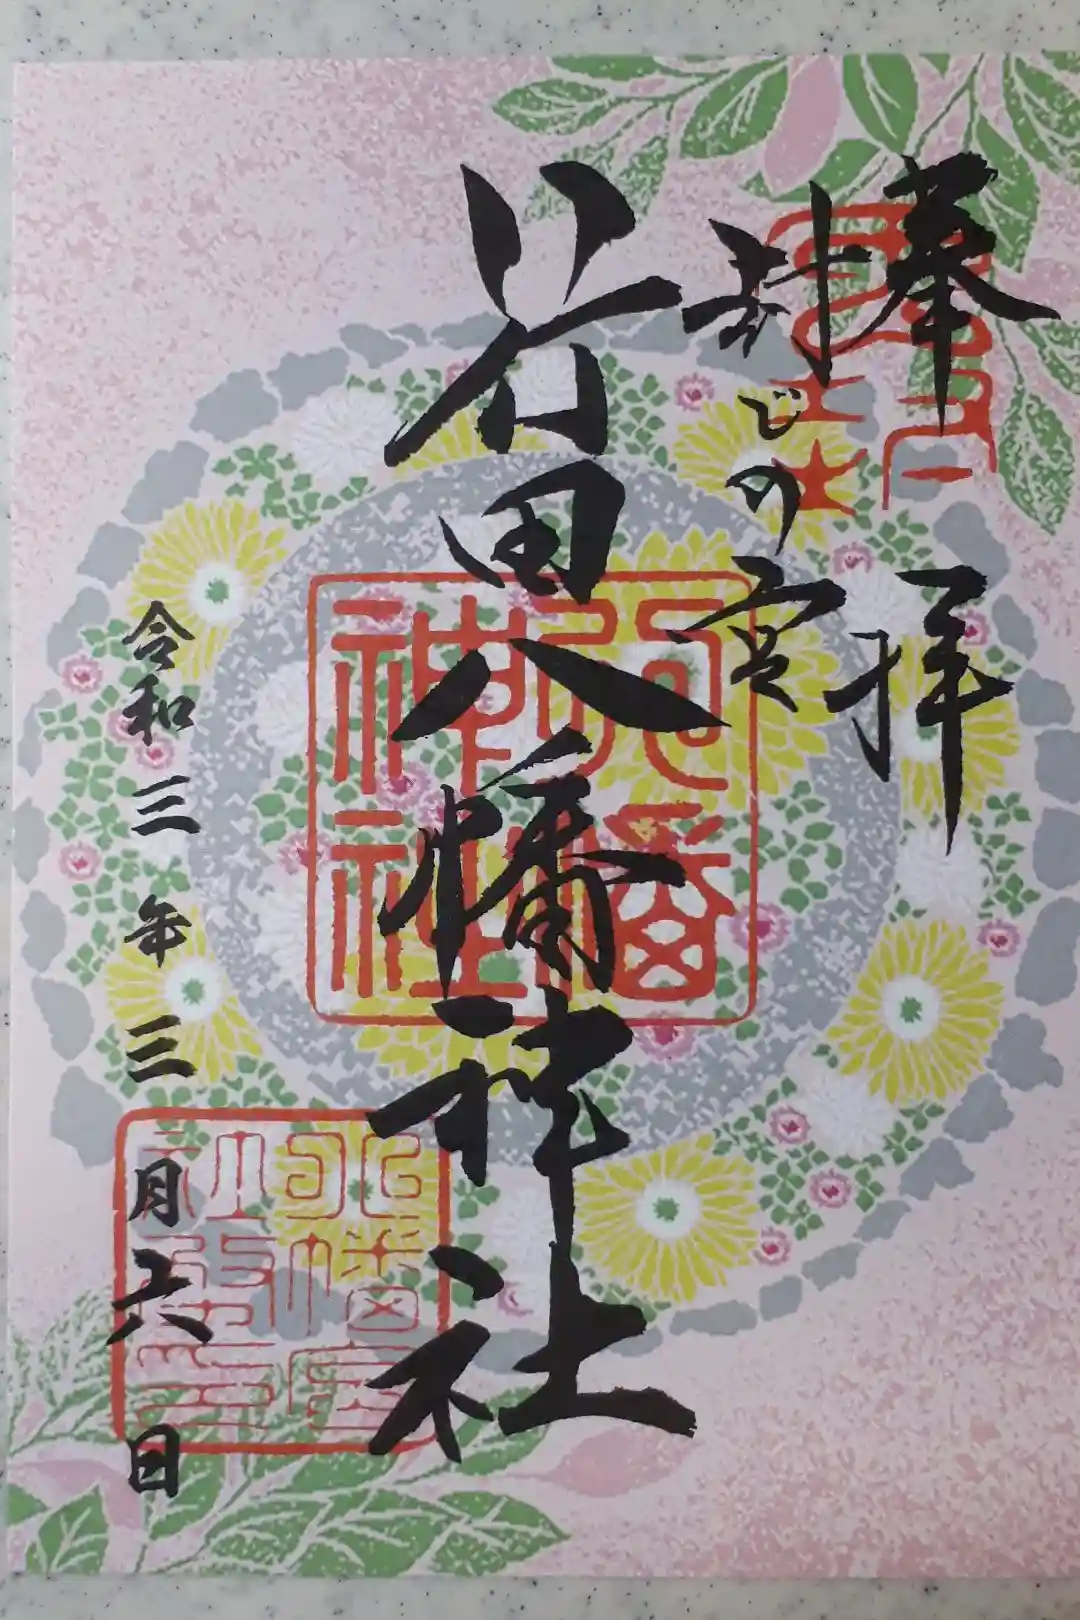 奉拝
封じの宮
行田八幡神社
八幡
神社
令和三年三月六日
八幡宮